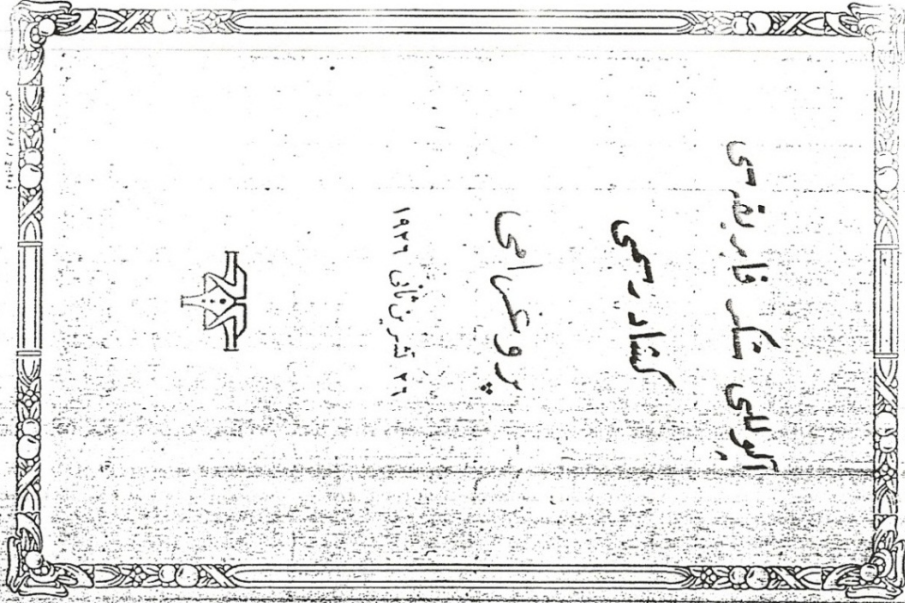 آلپوللی شکر فابریقه سی
کشاد رسمی
پروغرامی
٢٦ تشرین ثانی ١٩٢٦